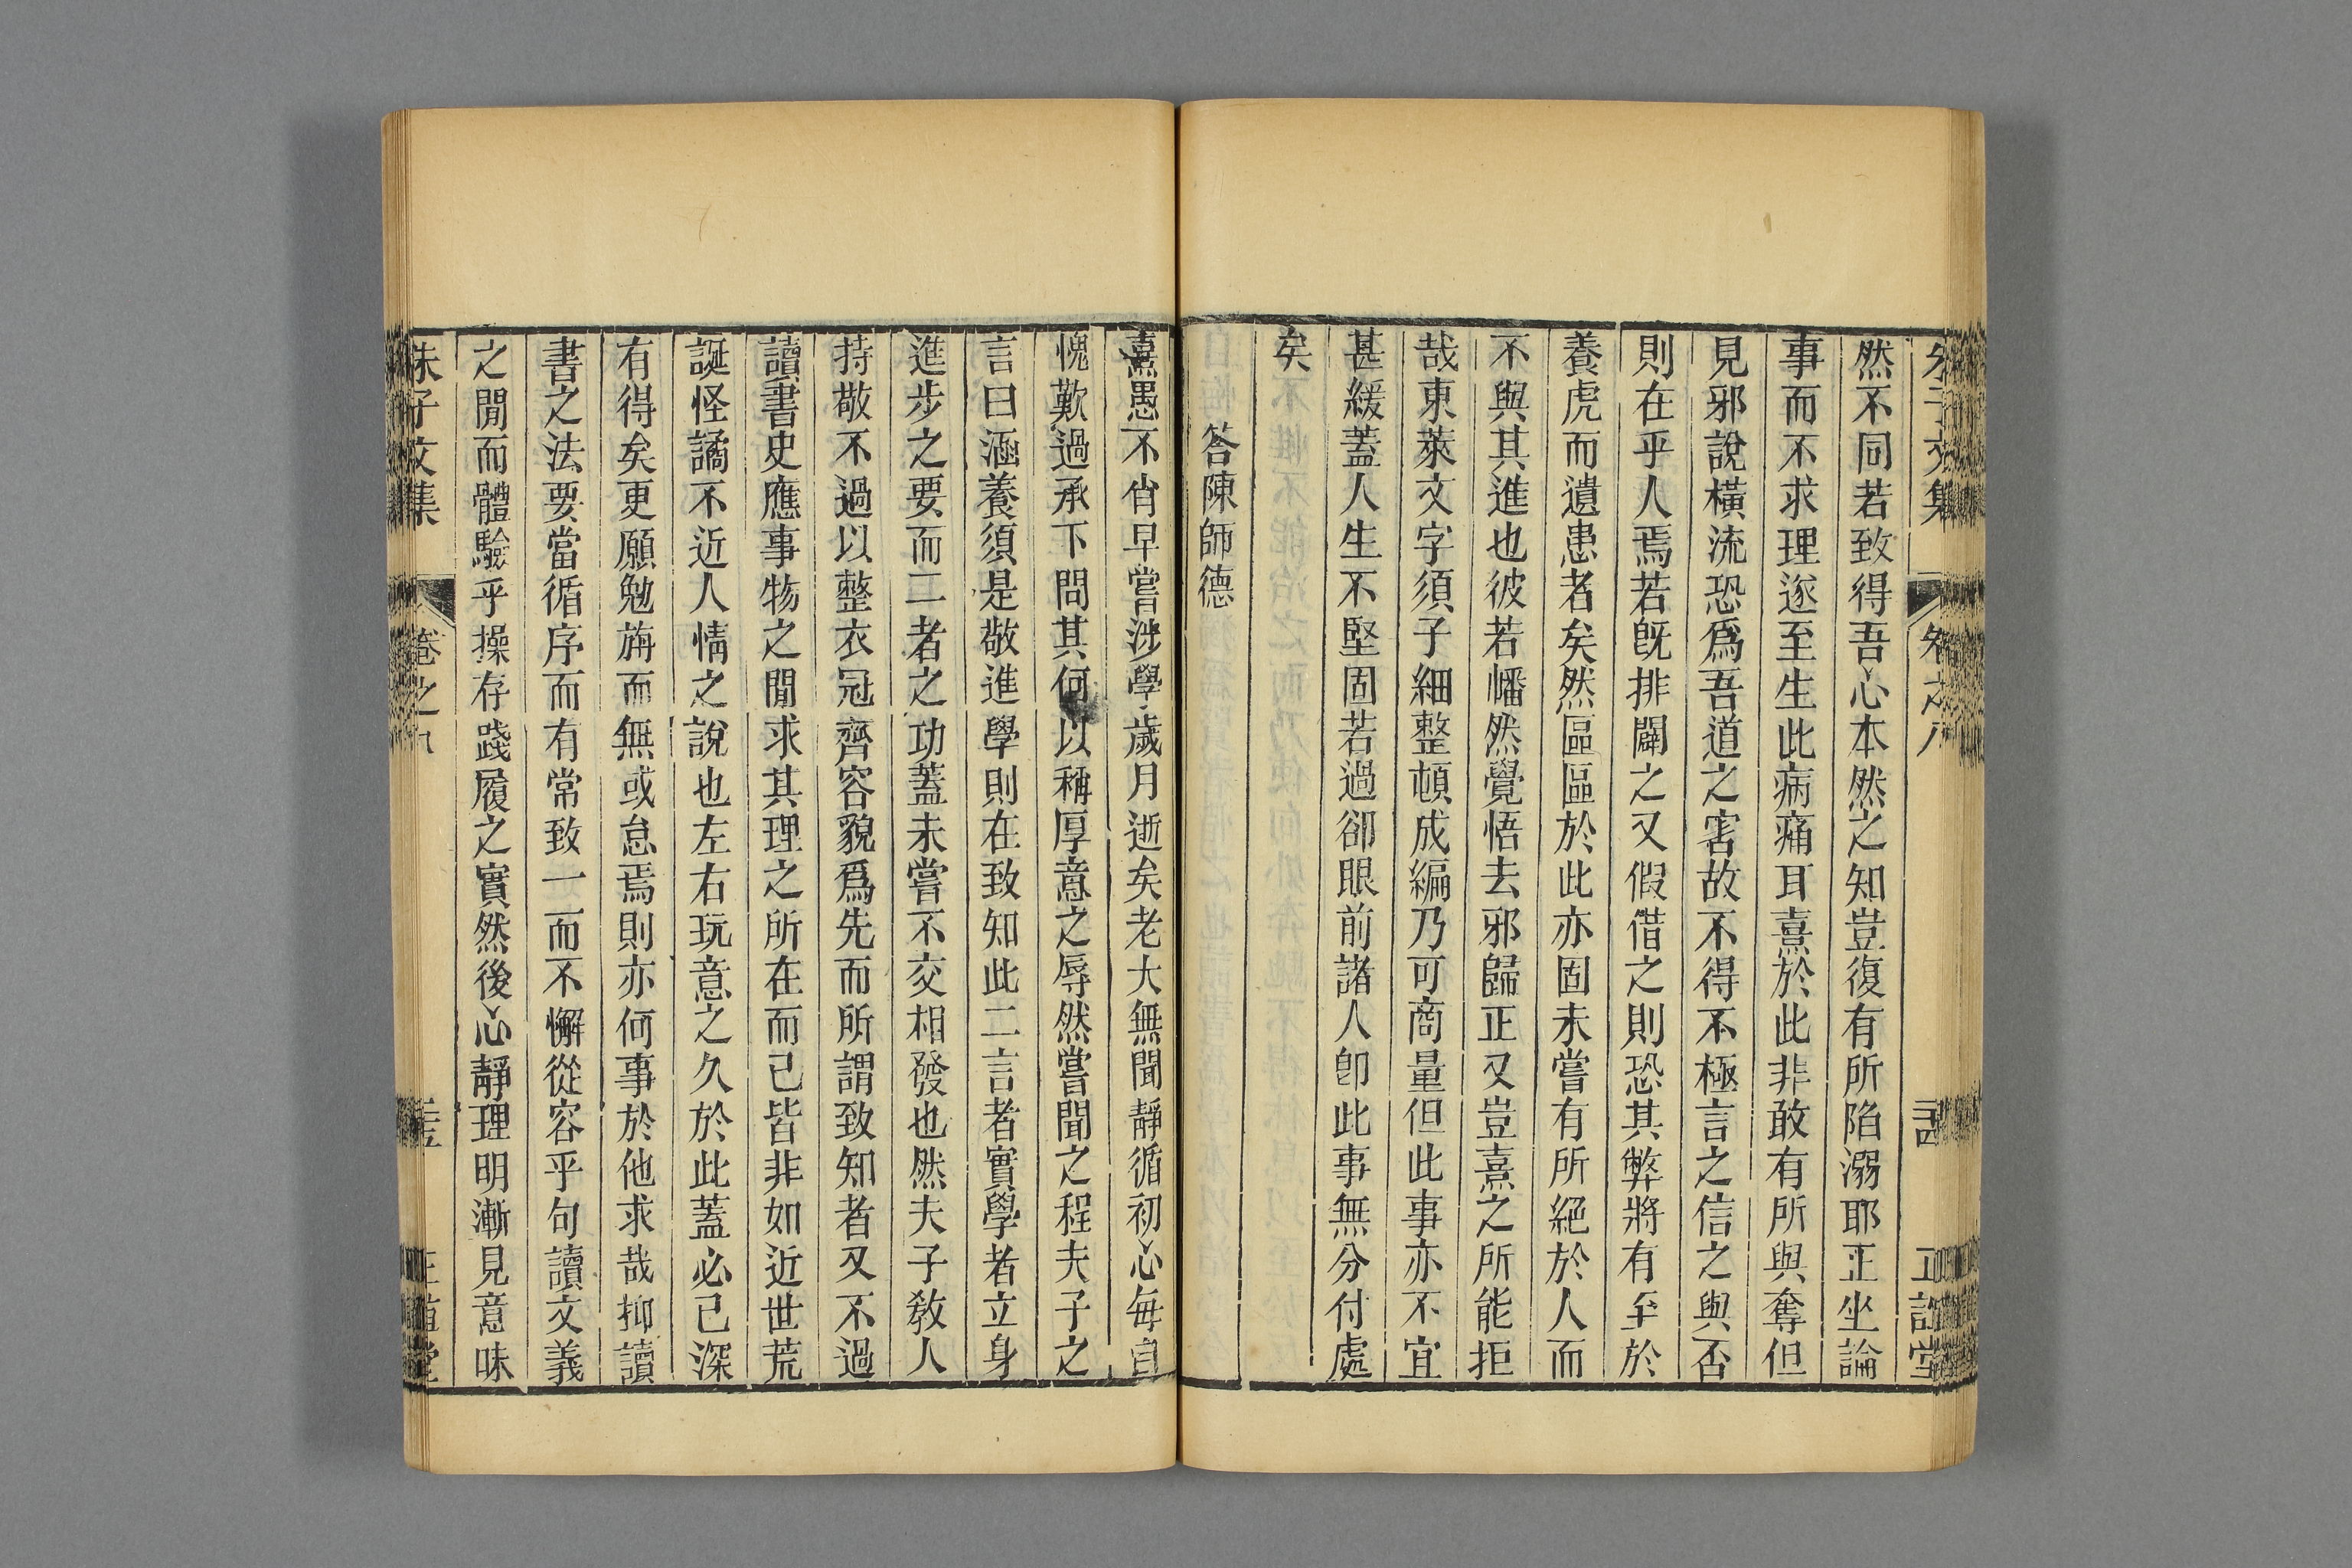 朱子文集 卷之八 二十四 正誼堂
然不同若致得吾心本然之知豈復有所陷溺耶正坐論
事而不求理遂至生此病痛耳熹於此非敢有所與奪但
見邪說橫流恐爲吾道之害故不得不極言之信之與否
則在乎人焉若旣排闢之又假借之則恐其弊將有至於
養虎而遺患者矣然區區於此亦固未嘗有所絕於人而
不與其進也彼若幡然覺悟去邪歸正又豈熹之所能拒
哉東萊文字須子細整頓成編乃可商量但此事亦不宜
甚緩蓋人生不堅固若過卻眼前諸人卽此事無分付處
矣
答陳師德
熹愚不肖早嘗涉學歲月逝矣老大無聞靜循初心每自
愧歎過承下問其何以稱厚意之辱然嘗聞之程夫子之
言曰涵養須是敬進學則在致知此二言者實學者立身
進步之要而二者之功蓋未嘗不交相發也然夫子敎人
持敬不過以整衣冠齊容貌爲先而所謂致知者又不過
讀書史應事物之閒求其理之所在而已皆非如近世荒
誕怪譎不近人情之說也左右玩意之久於此蓋必已深
有得矣更願勉旃而無或怠焉則亦何事於他求哉抑讀
書之法要當循序而有常致一而不懈從容乎句讀文義
之閒而體驗乎操存踐履之實然後心靜理明漸見意味
朱子文集 卷之八 二十五 正誼堂